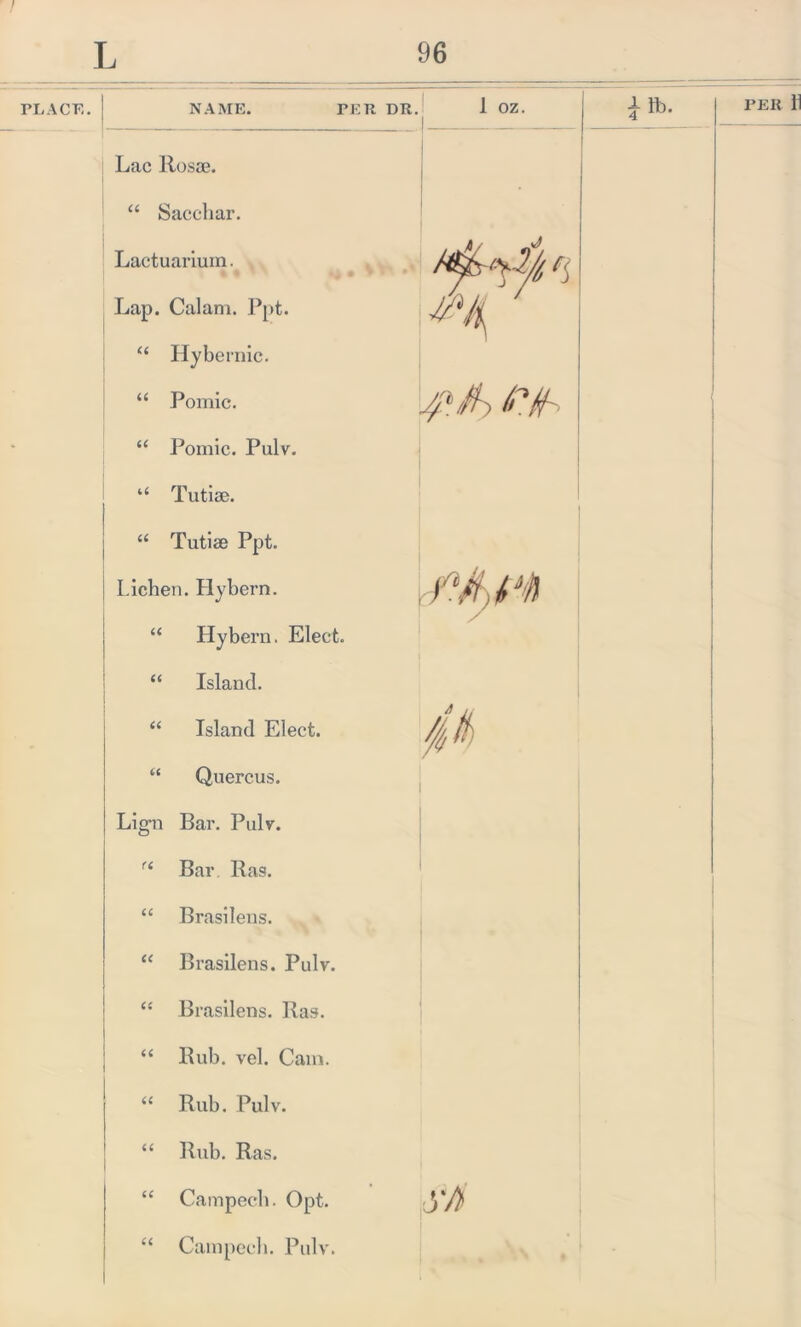 L 96
PLACE. NAME. PER DR. 1 OZ. ¼ lb. PER
Lac Rosæ.
“ Sacchar.
Lactuarium.
Lap. Calam. Ppt.
“ Hybernic.
“ Pomic.
“ Pomic. Pulv.
“ Tutiæ.
“ Tutiæ Ppt.
Lichen. Hybern.
“ Hybern. Elect.
“ Island.
“ Island Elect.
“ Quercus.
Lign Bar. Pulv.
“ Bar. Ras.
“ Brasilens.
“ Brasilens. Pulv.
“ Brasilens. Ras.
“ Rub. vel. Cam.
“ Rub. Pulv.
“ Rub. Ras.
“ Campech. Opt.
“ Campech. Pulv.